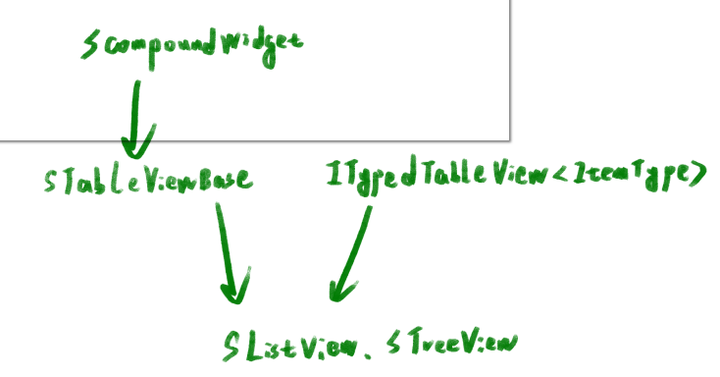 SCompoundWidget
STableViewBase
ITypedTableView<ItemType>
SListView. STreeView